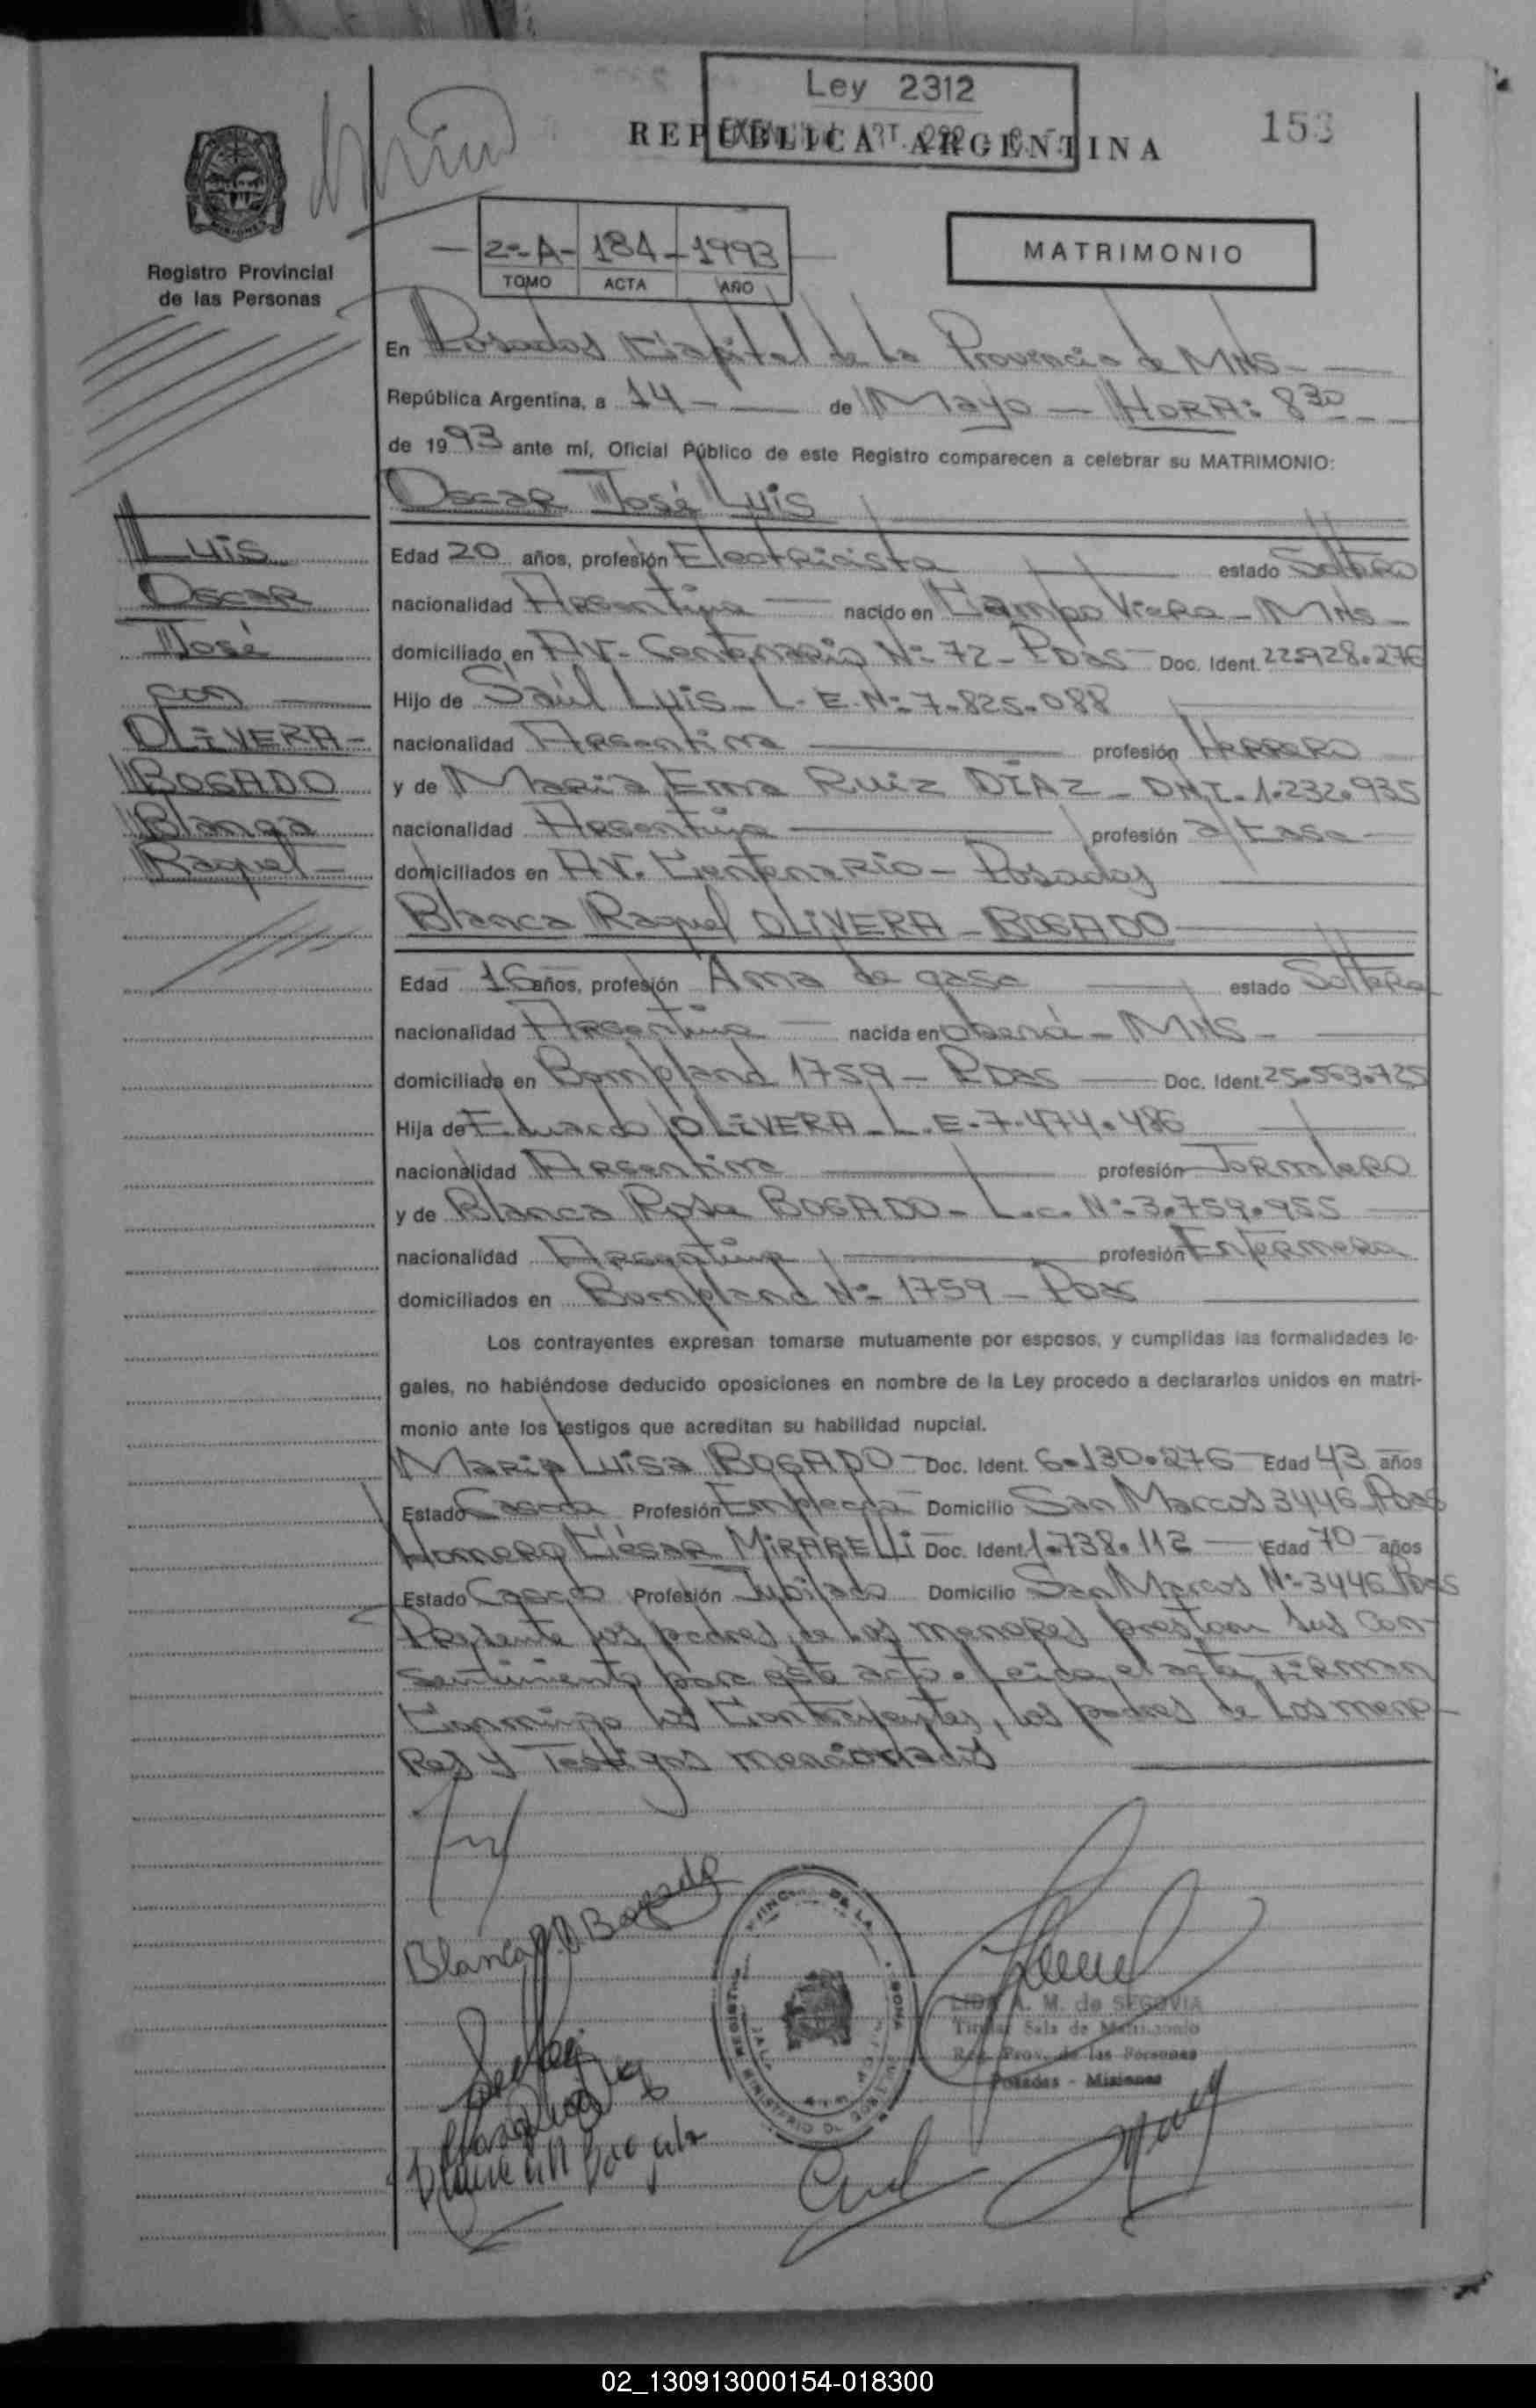 Ley 2312
REPUBLICA ARGENTINA
Registro Provincial
de las Personas
2º-A- 184-1993
TOMO ACTA AÑO
MATRIMONIO
En Posadas Capital de la Provincia de Mnes-
República Argentina, a 14 - de Mayo - HORA: 8 30
de 1993 ante mí, Oficial Público de este Registro comparecen a celebrar su MATRIMONIO:
Oscar José Luis
Luis
Oscar
José
con
OLIVERA-
BOGADO
Blanca
Raquel-
Edad 20 años, profesión Electricista estado Soltero
nacionalidad Argentina nacido en Campo Viera - Mnes-
domiciliado en AV- Centenario Nº 72- Pdas- Doc. Ident. 22.928.276
Hijo de Saúl Luis- L. E. Nº 7.825.088
nacionalidad Argentina profesión Herrero
y de Maria Ema Ruiz DIAZ - DNI- 1.232.935
nacionalidad Argentina profesión a/casa
domiciliados en AV. Centenario - Posadas
Blanca Raquel OLIVERA - BOGADO
Edad 16 años, profesión Ama de casa estado Soltera
nacionalidad Argentina nacida en Oberá - Mnes -
domiciliada en Bompland 1759 - Pdas Doc. Ident. 25.563.725
Hija de Eduardo OLIVERA - L.E-7.474.486
nacionalidad Argentina profesión Jornalero
y de Blanca Rosa BOGADO- L.c. Nº 3.759.955
nacionalidad Argentina profesión Enfermera
domiciliados en Bompland Nº 1759 - Pdas
Los contrayentes expresan tomarse mutuamente por esposos, y cumplidas las formalidades le-
gales, no habiéndose deducido oposiciones en nombre de la Ley procedo a declararlos unidos en matri-
monio ante los testigos que acreditan su habilidad nupcial.
Maria Luisa BOGADO - Doc. Ident. 6.130.276 Edad 43 años
Estado Casada Profesión Empleada Domicilio San Marcos 3446 Pdas
Homero César MIRABELLI Doc. Ident. 1.738.112 - Edad 70 años
Estado Casado Profesión Jubilado Domicilio San Marcos Nº 3446 Pdas
Presente los padres de los menores prestan sus con-
sentimiento para este acto. Leida el acta, FIRMAN
Conmigo los Contrayentes, los padres de los meno-
res y Testigos mencionados
Blanca R. O. Bogado
LIDIA A. M. de SEGOVIA
Titular Sala de Matrimonio
Reg. Prov. de las Personas
Posadas - Misiones
02_130913000154-018300